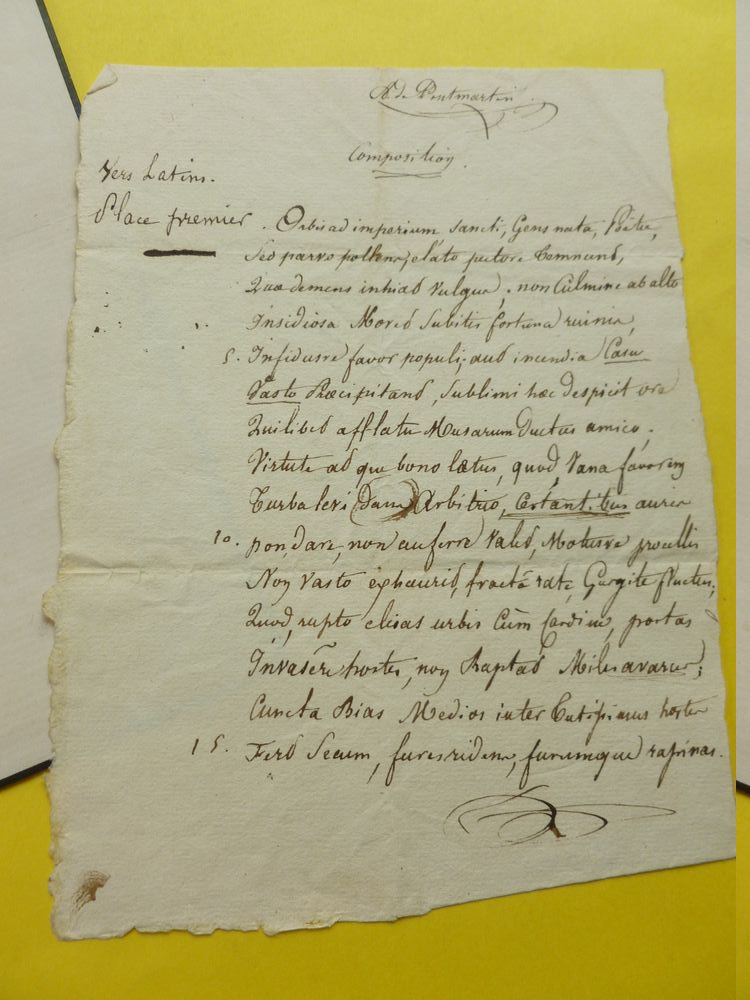 A. de Pontmartin
Composition.
Vers Latins.
Place premier.
Orbis ad imperium sancti, Gens nata, Poëtæ,
Sed parvo pollens, elato pectore temnunt,
Quæ demens inhiat Vulgus; non Culmine ab alto
Insidiosa Movet Subitis fortuna ruinis,
5. Infidusve favor populi; aut incendia Casu
Vasto Præcipitant, Sublimi hæc despicit ore
Quilibet afflatu Musarum Ductus amico.
Virtute atque bono lætus, quod Vana favorem
Turba levi Dans Arbitrio, Certantibus auris
10. pondare, non auferre Valet, Motusve procellis
Non Vasto exhaurit, fractâ rate, Gurgite fluctus,
Quod, rupto elisas urbis Cùm Cardine, portas
Invasêre hostes, non Raptat Miles avarus;
Cuncta Bias Medios inter tutissimus hostes
15. Fert Secum, fures ridens, furumque rapinas.